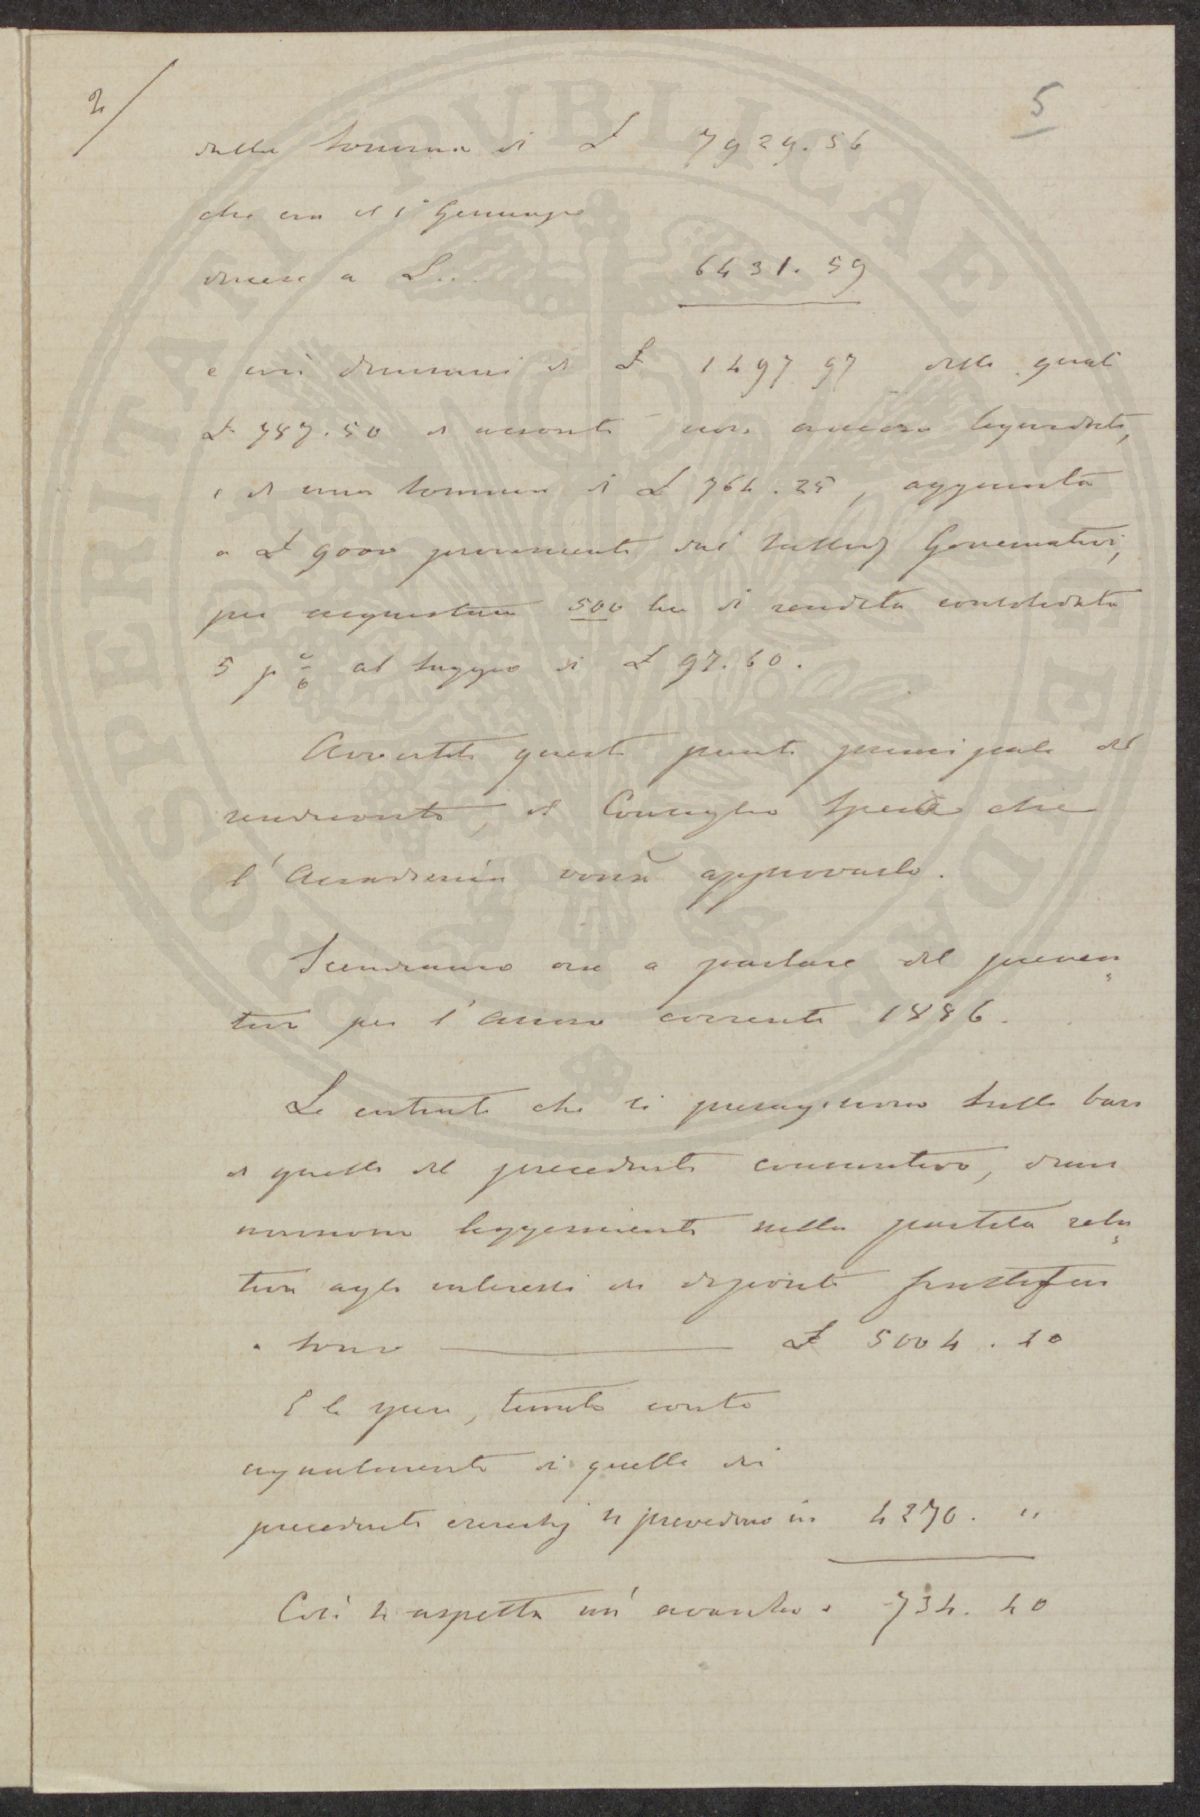 2/
5
dalla somma di £ 7929.56
che era il 1° Gennajo
discese a £... 6431.59
e così diminuì di £ 1497 97 delle quali
£ 787.50 di acconti non ancora liquidati,
e di una somma di £ 764.25, aggiunta
a £ 9000 provenienti dai Governativi,
per acquistare 500 lire di rendita consolidata
5 p % al saggio di £ 97.60.
Avvertiti questi punti principali del
rendiconto, il Consiglio spera che
l'Accademia vorrà approvarlo.
Scendiamo ora a parlare del preven
tivo per l'anno corrente 1886.
Le entrate che si presagiscono sulla base
di quelle del precedente consuntivo, dimi
nuiscono leggermente nella partita rela
tiva agli interessi dei depositi fruttiferi
e sono £ 5004.40
E le spese, tenuto conto
ugualmente di quelle dei
precedenti esercizj si prevedono in 4270. "
Così si aspetta un' avanzo di 734. 40
PROSPERITATI PVBLICAE AVGENDAE